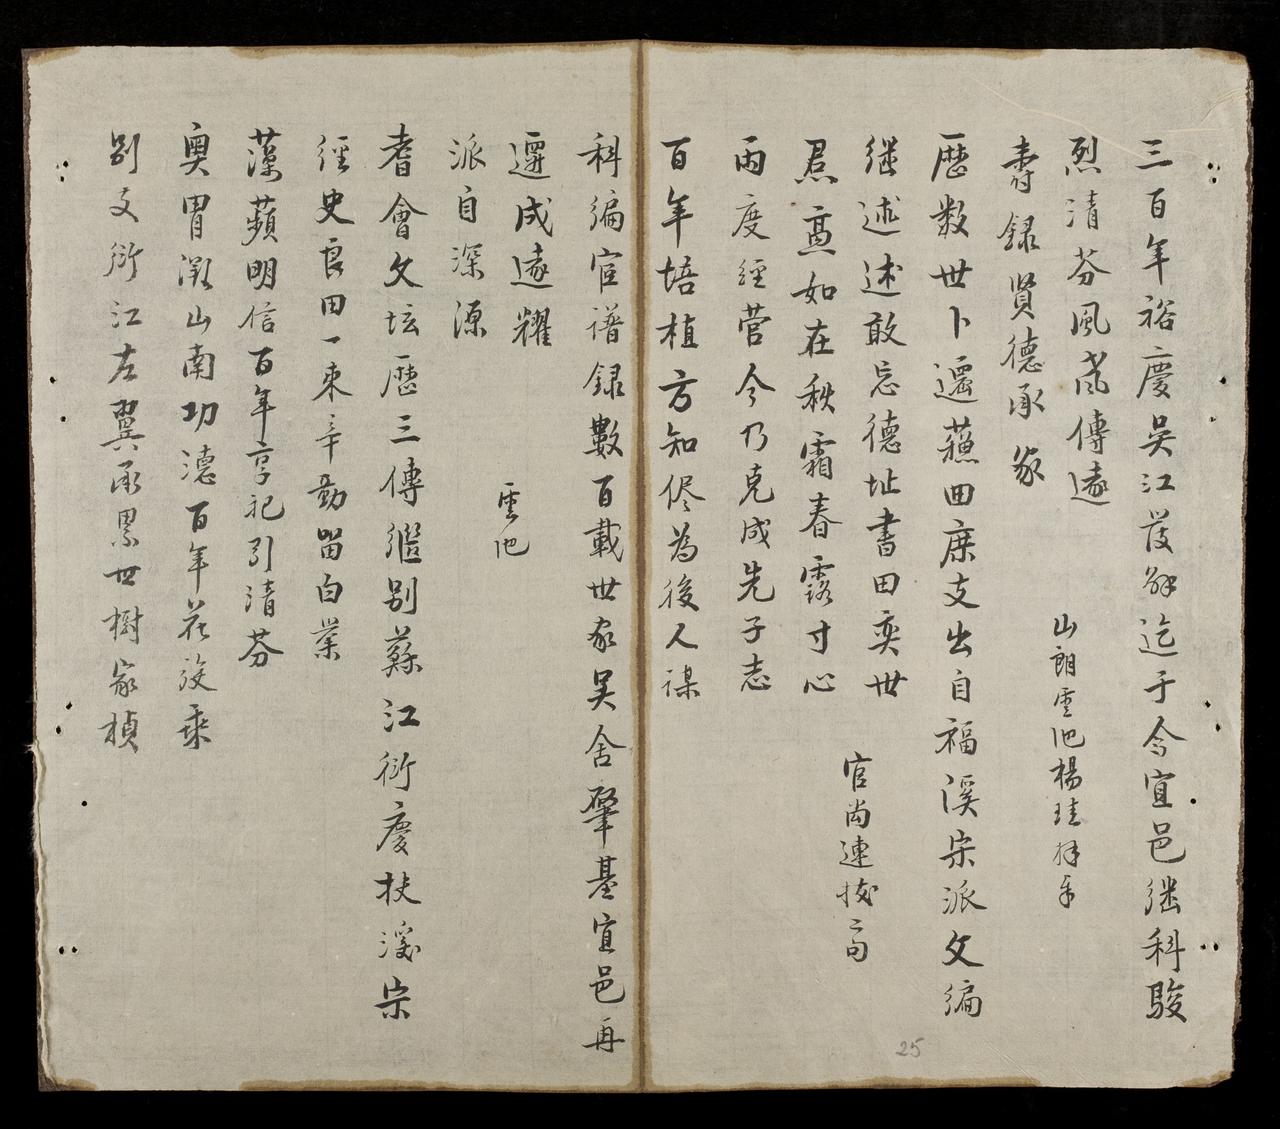 三百年裕慶吳江發解迄于今宜邑継科駿
烈清芬風式傳遠
山朗雲池楊珪拜手
壽録賢德承家
歴数世卜遷蘓田庶支出自福溪宗派文編
継述述敢忘德址書田奕世
官尚連
焄蒿如在秋霜春露寸心
兩度經营今乃克成先子志
百年培植方知侭為後人謀
科編宦譜録數百載世家吴舍肇基宜邑再
遷成遠耀
雲池
派自深源
耆會文坛歴三傳繼别蘇江衍慶扶溪宗
經史良田一束辛勤留白業
藻蘋明信百年享祀引清芬
奧胃山南功德百年花
别支衍江左翼承累世樹家楨
25